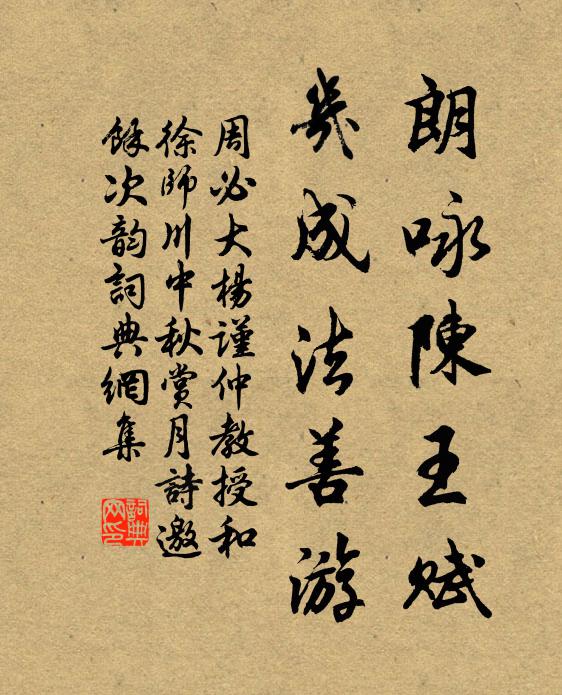 朗咏陳王賦
幾成法善游
周必大楊謹仲教授和
徐師川中秋賞月詩邀
餘次韵詞典網集
詞典
网印